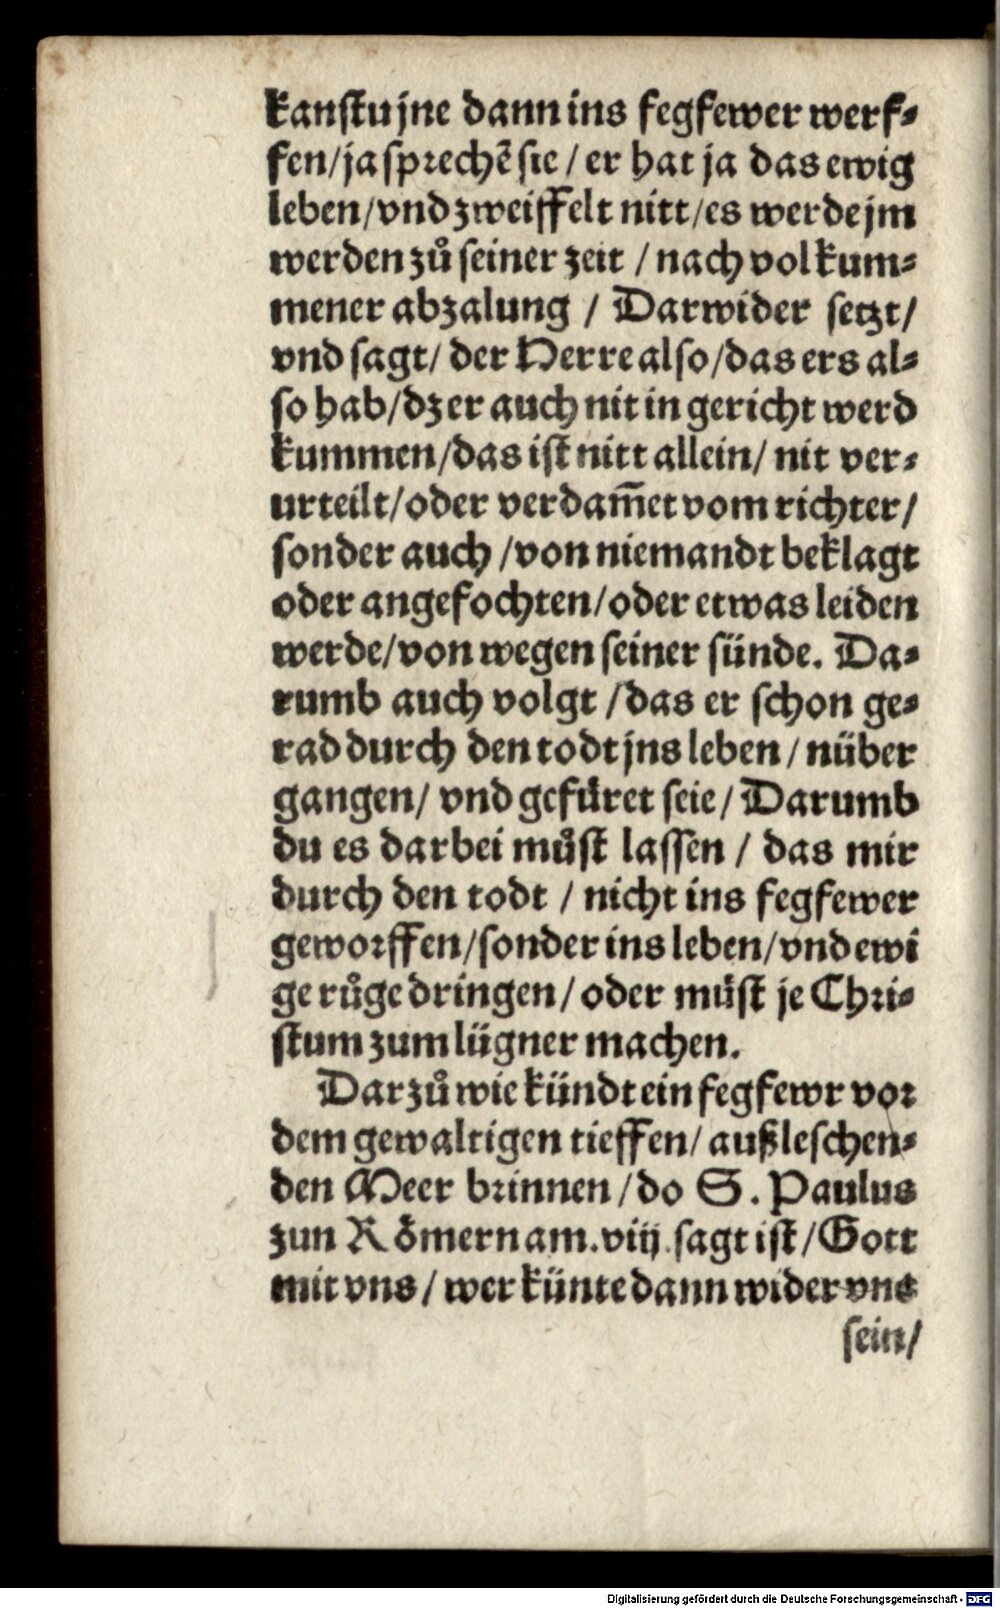 kanstu jne dann ins fegfewer werf⸗
fen/ja sprechẽ sie/er hat ja das ewig
leben/vnd zweiffelt nitt/es werde jm
werden zů seiner zeit/nach volkum⸗
mener abzalung/Darwider setzt/
vnd sagt/der Herre also/das ers al⸗
so hab/dz er auch nit in gericht werd
kummen/das ist nitt allein/nit ver⸗
urteilt/oder verdam̅et vom richter/
sonder auch/von niemandt beklagt
oder angefochten/oder etwas leiden
werde/von wegen seiner sünde. Da⸗
rumb auch volgt/das er schon ge⸗
rad durch den todt jns leben/nüber
gangen/vnd gefüret seie/Darumb
du es darbei můst lassen/das mir
durch den todt/nicht ins fegfewer
geworffen/sonder ins leben/vnd ewi
ge růge dringen/oder müst je Chri⸗
stum zum lügner machen.
Darzů wie kündt ein fegfewr vor
dem gewaltigen tieffen/außleschen⸗
den Meer brinnen/do S. Paulus
zun Rőmern am.viij.sagt ist/Gott
mit vns/wer künte dann wider vns
sein/
Digitalisierung gefördert durch die Deutsche Forschungsgemeinschaft - DFG